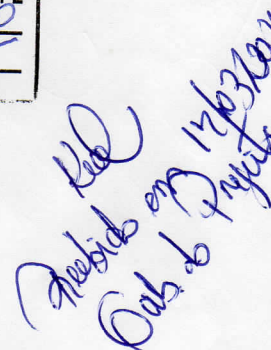 Recebido em 17/03/20
Gab. do Prefeito